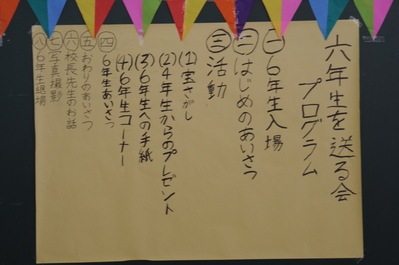 六年生を送る会
プログラム
㊀6年生入場
㊁はじめのあいさつ
㊂活動
(1)宝さがし
(2)4年生からのプレゼント
(3)6年生への手紙
(4)6年生コーナー
㊃6年生あいさつ
㊄おわりのあいさつ
㊅校長先生のお話
㊆写真撮影
㊇6年生退場